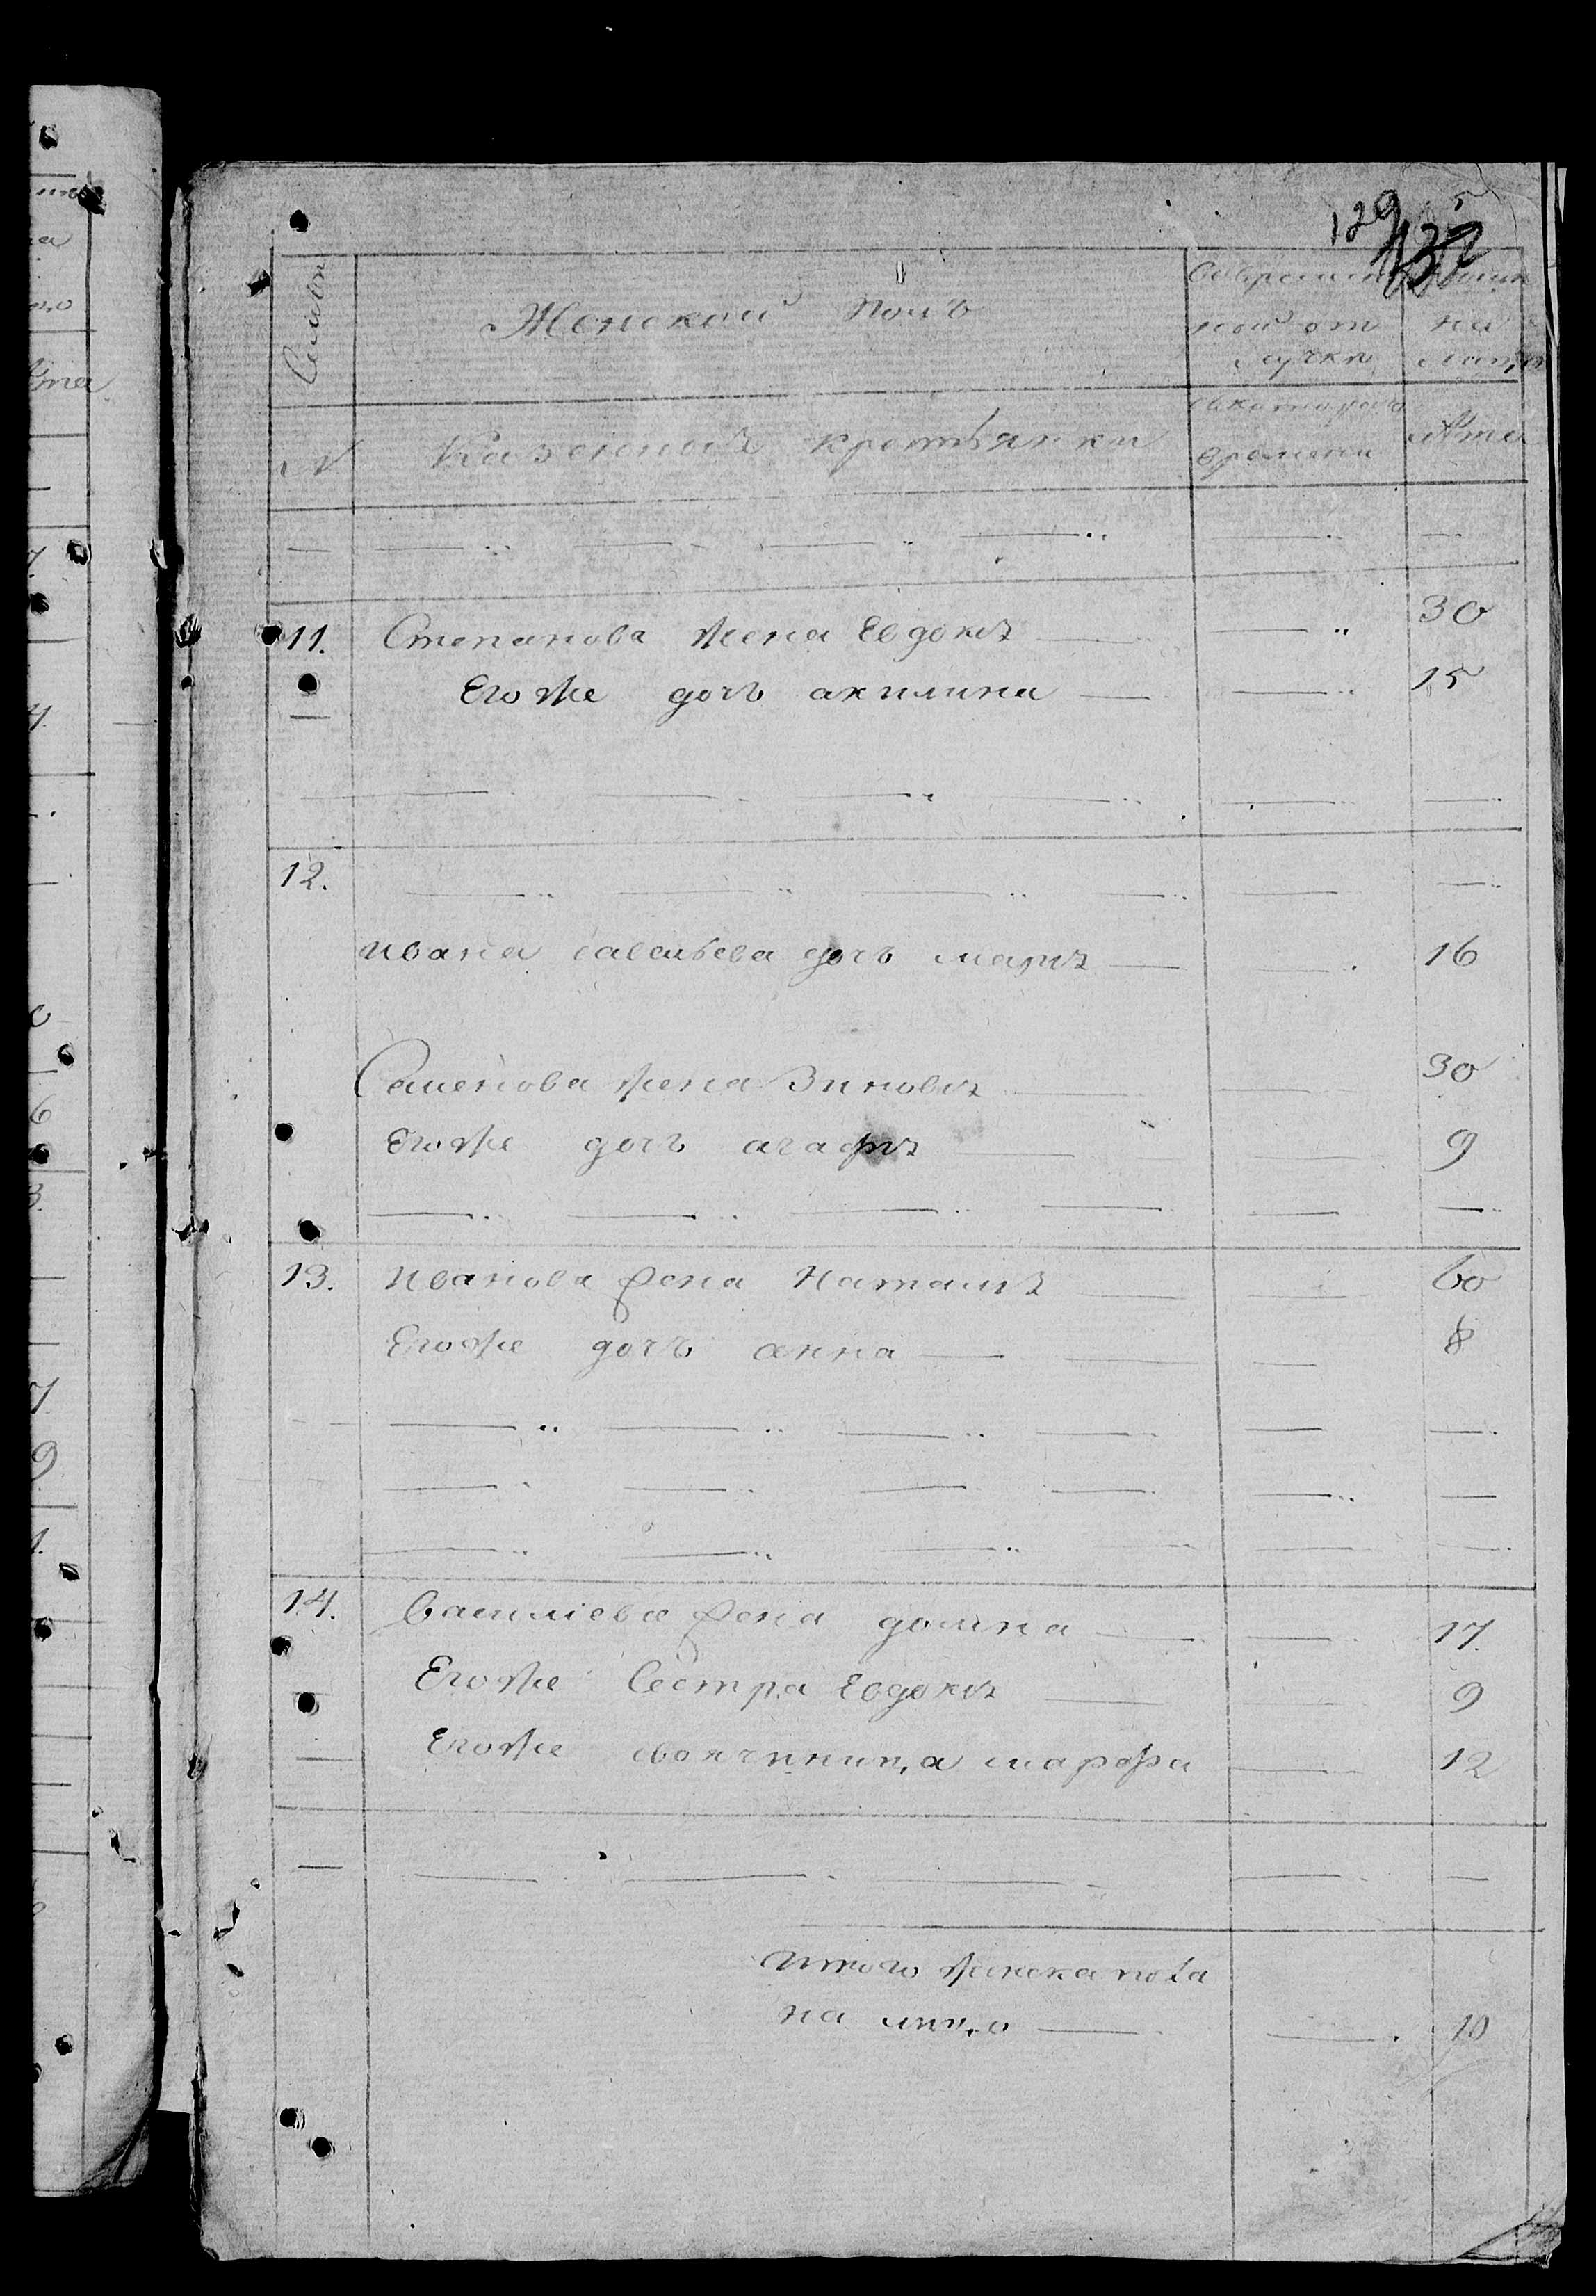 129 132
Семьи Женской полъ Вовремен ной от лучки Ныне на лицо
№ Казенныя крестьянки Скотораго времени Лета
11. Степанова жена Евдокия 30
Его же дочь акилина 15
12.
Ивана савельева дочь мария 16
Семенова жена Зиновия 30
Его же дочь агафия 9
13. Иванова жена Наталия 60
Его же дочь анна 8
14. Василиева жена домна 17.
Его же Сестра Евдокия 9
Его же своячиница марфа 12
Итого женска пола
на лицо 10